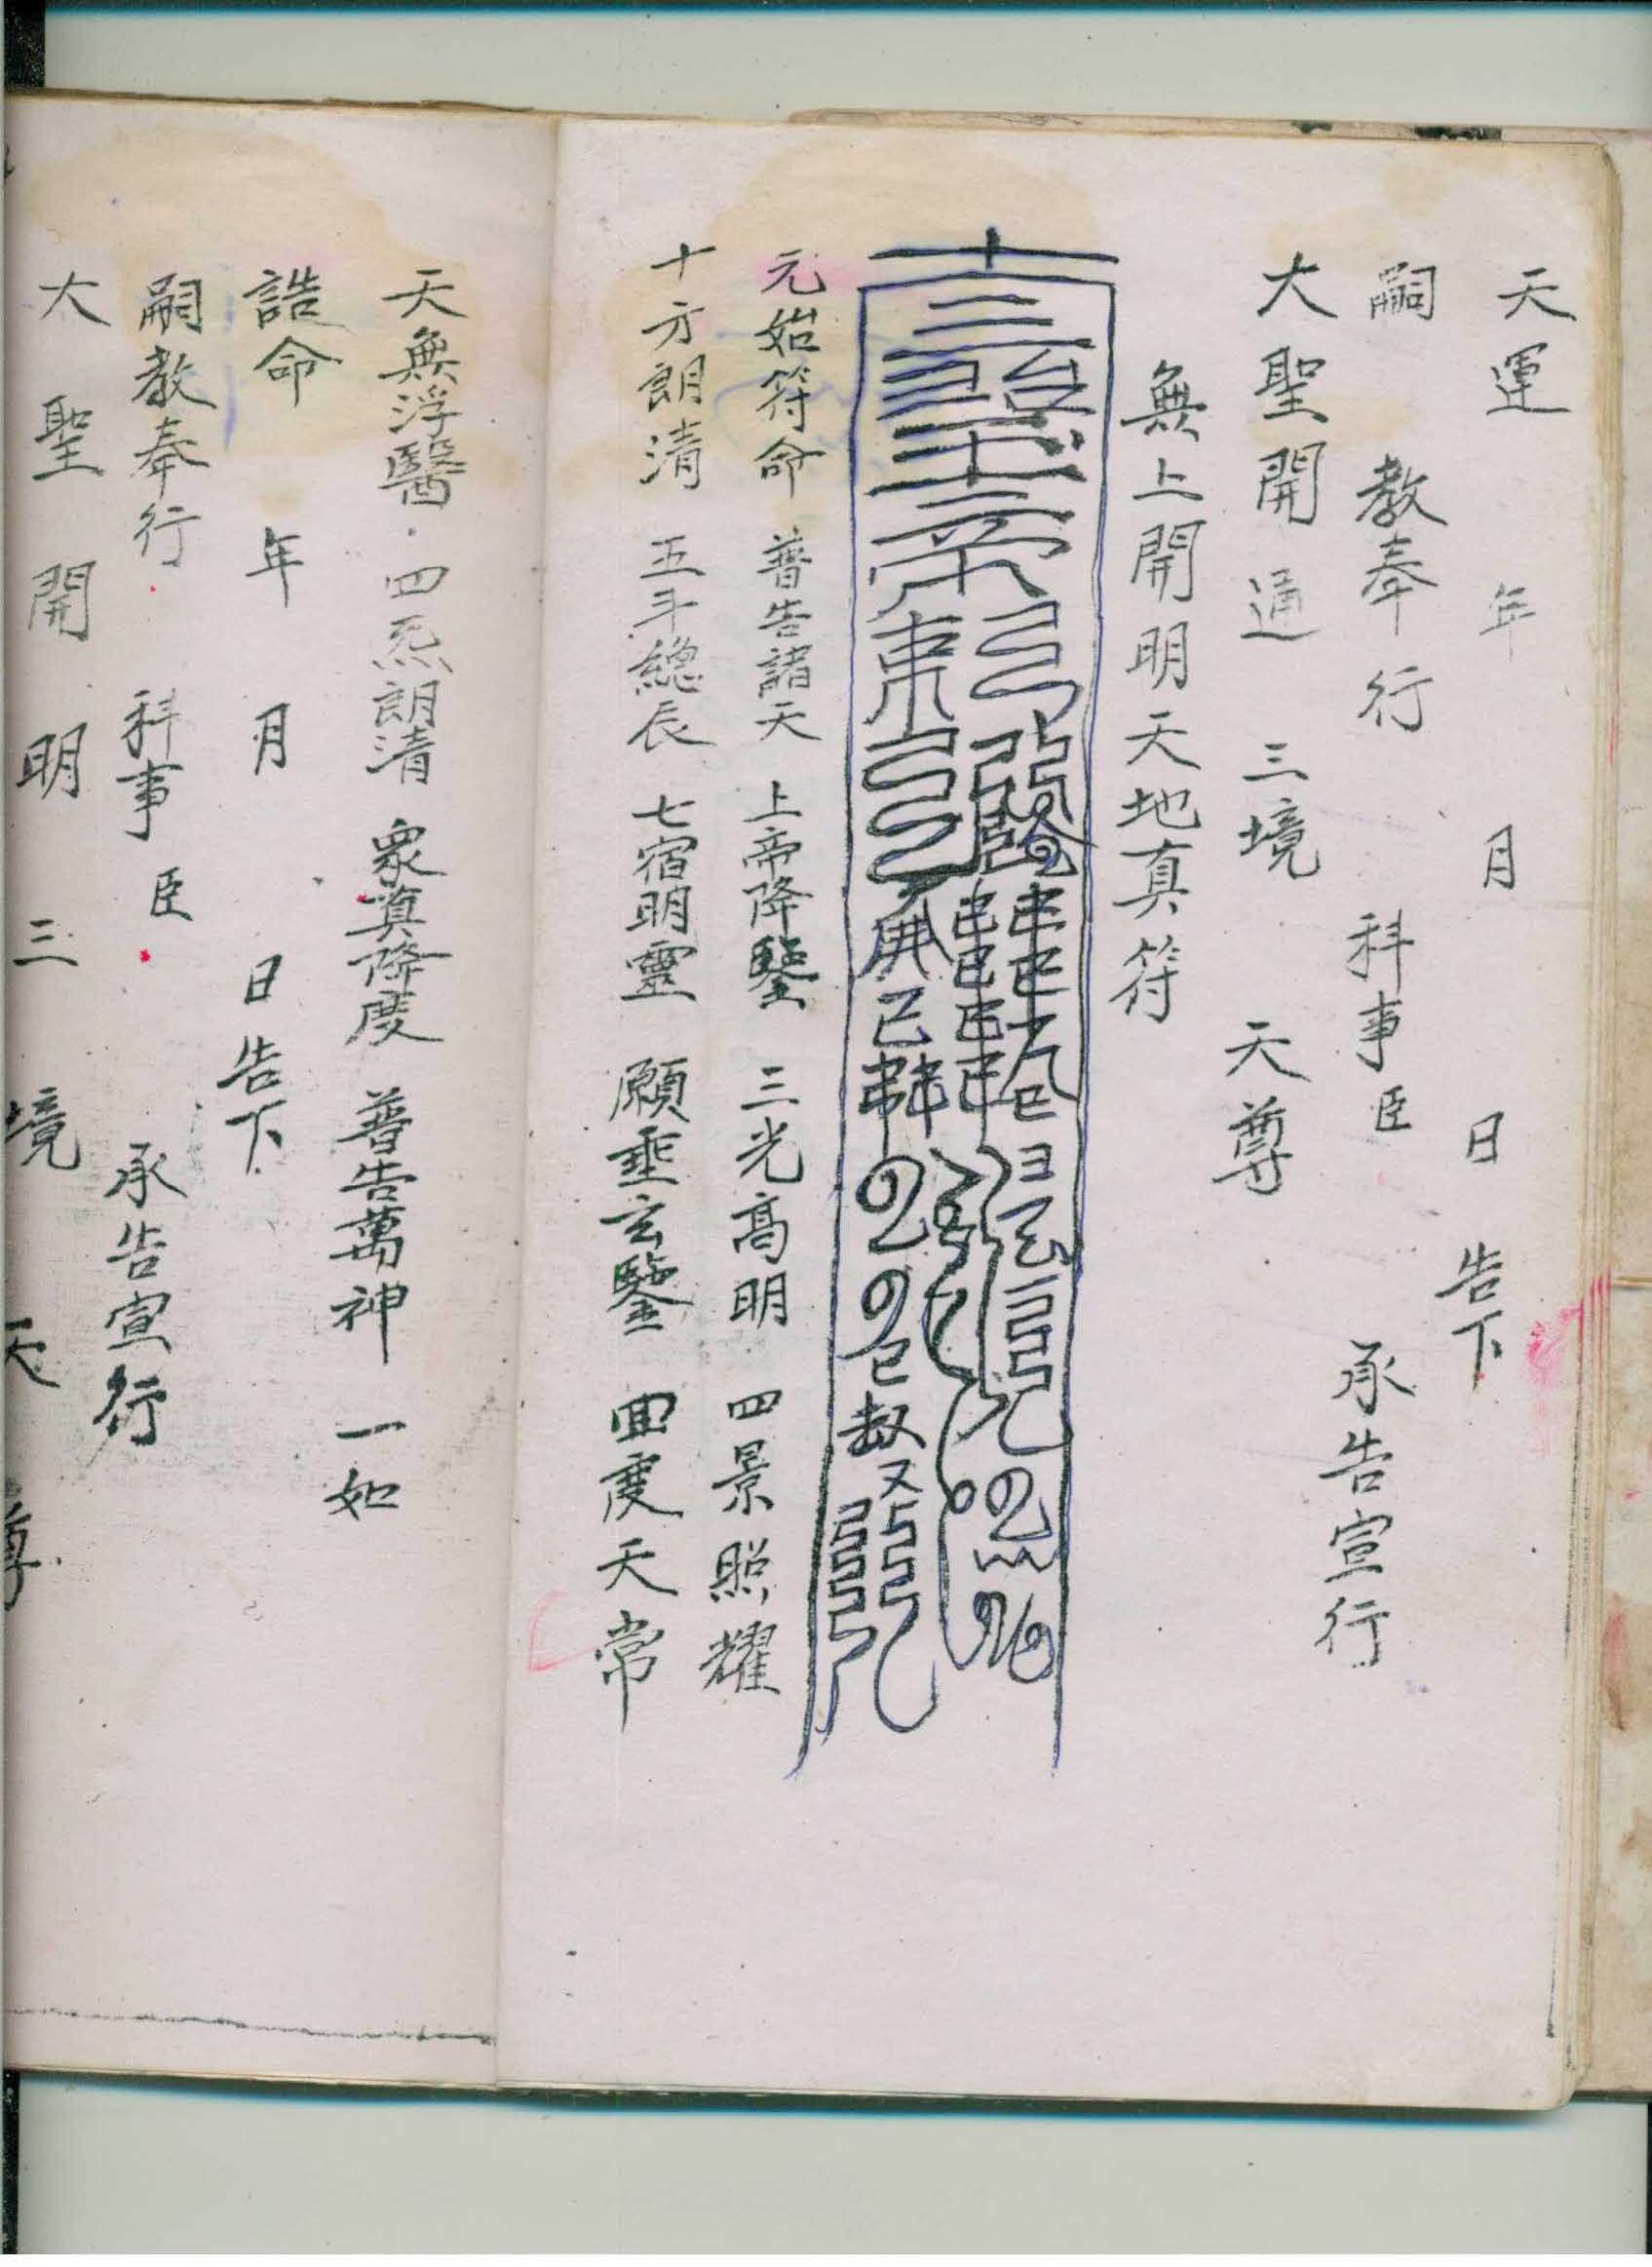 天運 年 月 日 告下
嗣 教奉行 科事臣 承告宣行
大聖開通 三境 天尊
無上開明天地真符
元始符命 普告諸天 上帝降鑒 三光高明 四景照耀
十方朗清 五斗總辰 七宿明靈 願垂玄鑒 回度天常
天無浮醫 四炁朗清 眾真降度 普告萬神 一如
誥命 年 月 日告下
嗣教奉行 科事臣 承告宣行
大聖開明三境天尊